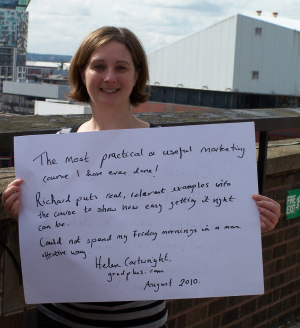 The most practical & useful marketing
course I have ever done!
Richard puts real, relevant examples into
the course to show how easy getting it right
can be.
Could not spend my Friday mornings in a more
effective way
Helen Cartwright,
gradplus.com
August 2010.
FIRE